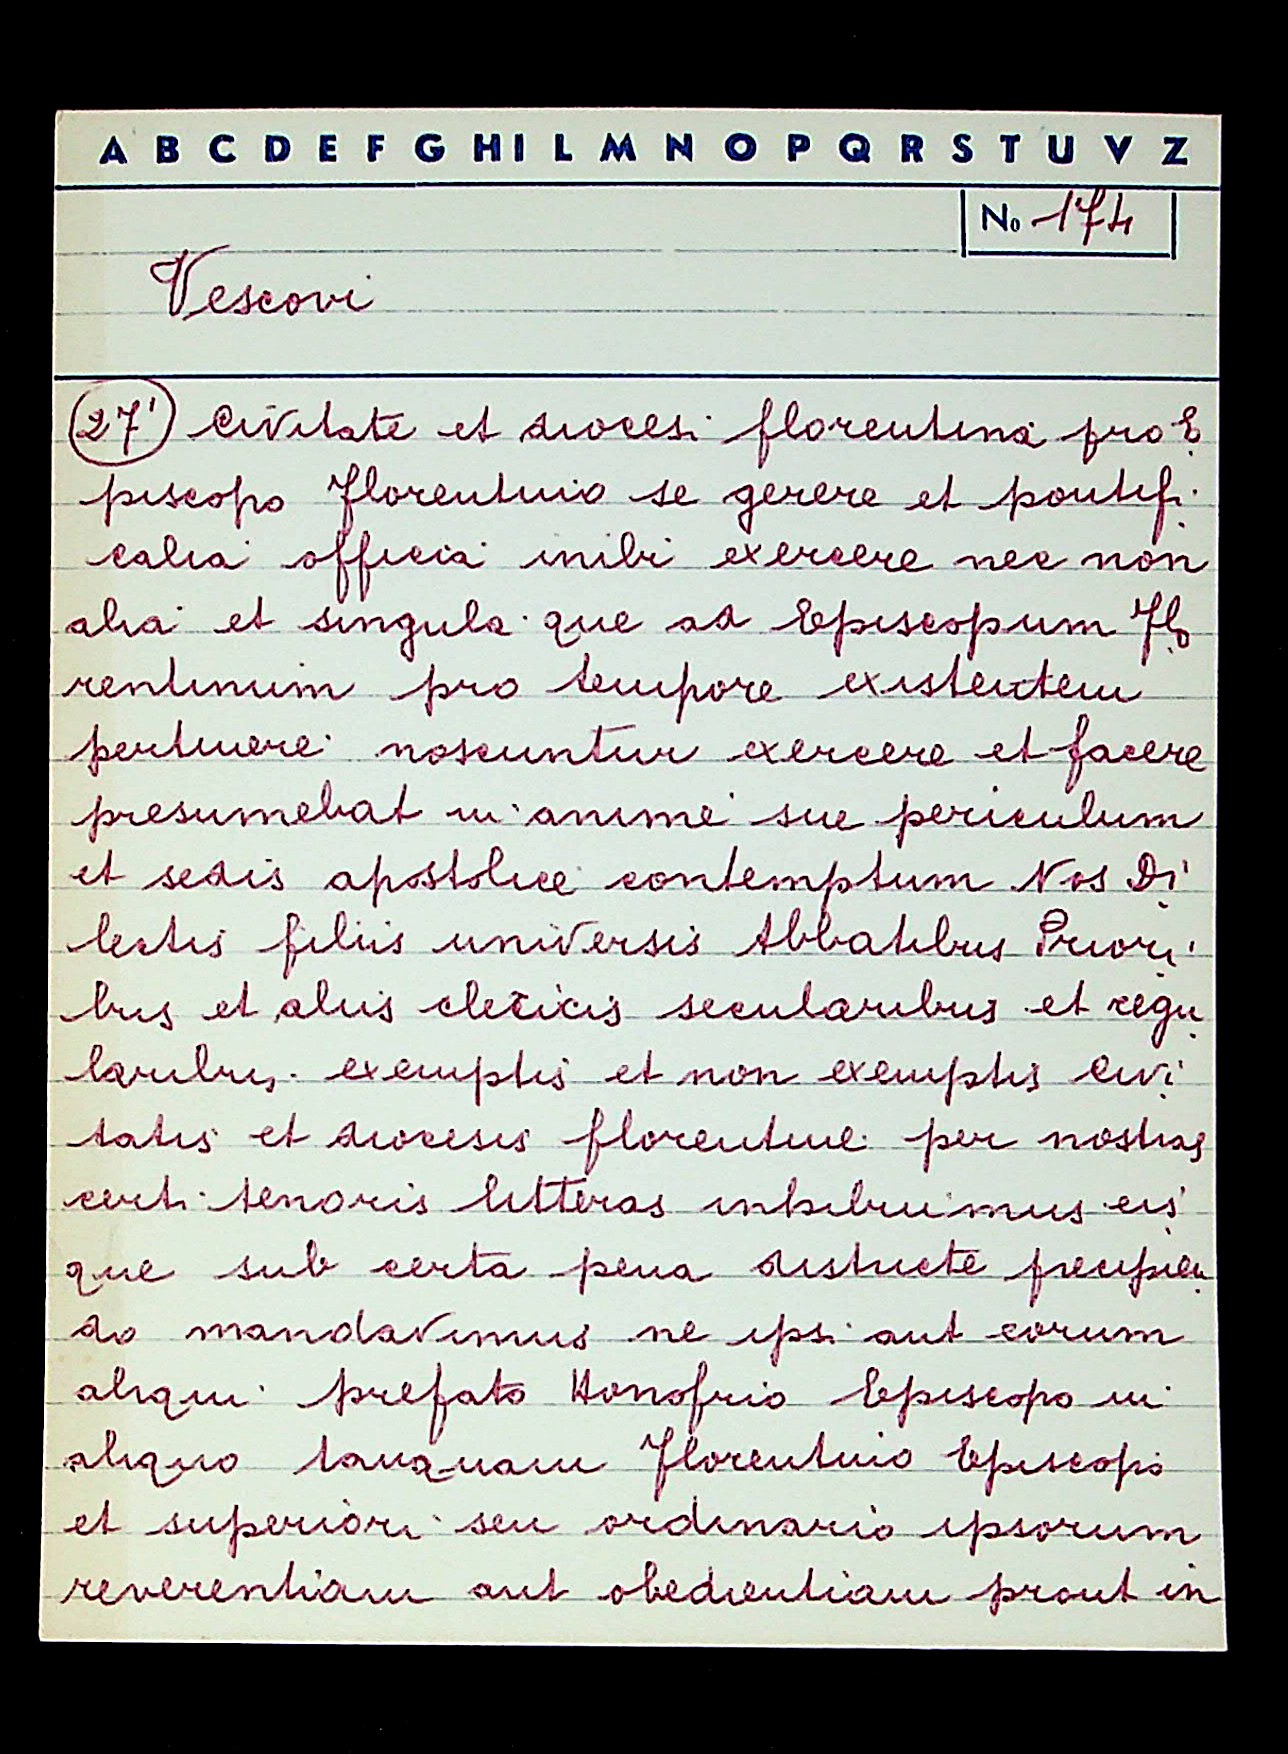 A B C D E F G H I L M N O P Q R S T U V Z
No 174
Vescovi
27' Civitate et diocesi florentina pro E
piscopo Florentino se gerere et pontifi
calia officia inibi exercere nec non
alia et singula que ad Episcopum Flo
rentinum pro tempore existentem
pertinere noscuntur exercere et facere
presumebat in anime sue periculum
et sedis apostolice contemptum Nos Di
lectis filiis universis Abbatibus Priori
bus et aliis clericis secularibus et regu
laribus exemptis et non exemptis Civi
tatis et diocesis florentine per nostras
certi tenoris litteras inhibuimus eis
que sub certa pena districte precipien
do mandavimus ne ipsi aut eorum
aliqui prefato Honofrio Episcopo in
aliquo tanquam Florentino Episcopo
et superiori seu ordinario ipsorum
reverentiam aut obedientiam prout in